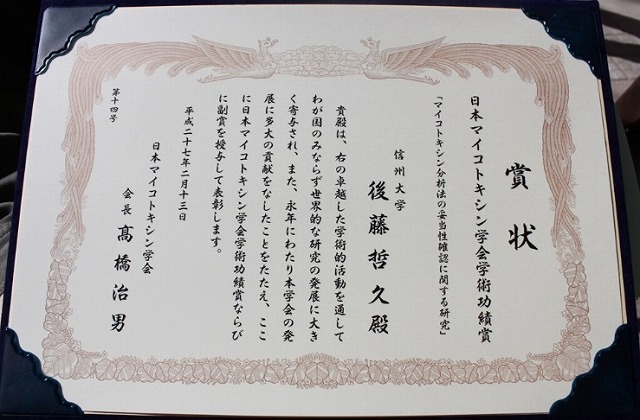 賞状
日本マイコトキシン学会学術功績賞
「マイコトキシン分析法の妥当性確認に関する研究」
信州大学
後藤哲久殿
貴殿は、右の卓越した学術的活動を通して
わが国のみならず世界的な研究の発展に大き
く寄与され、また、永年にわたり本学会の発
展に多大の貢献をなしたことをたたえ、ここ
に日本マイコトキシン学会学術功績賞ならび
に副賞を授与して表彰します。
平成二十七年二月十三日
日本マイコトキシン学会
会長 髙橋治男
第十四号